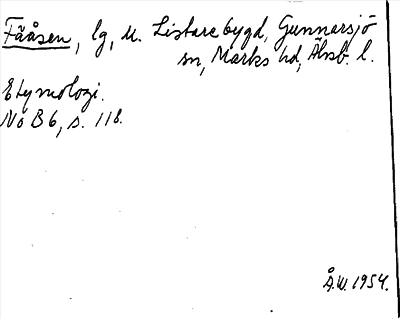 Fååsen, lg, u. Listarebygd, Gunnarsjö
sn, Marks hd, Älvsb. l.
Etymologi.
NoB 6, s. 118.
Å.W. 1954.